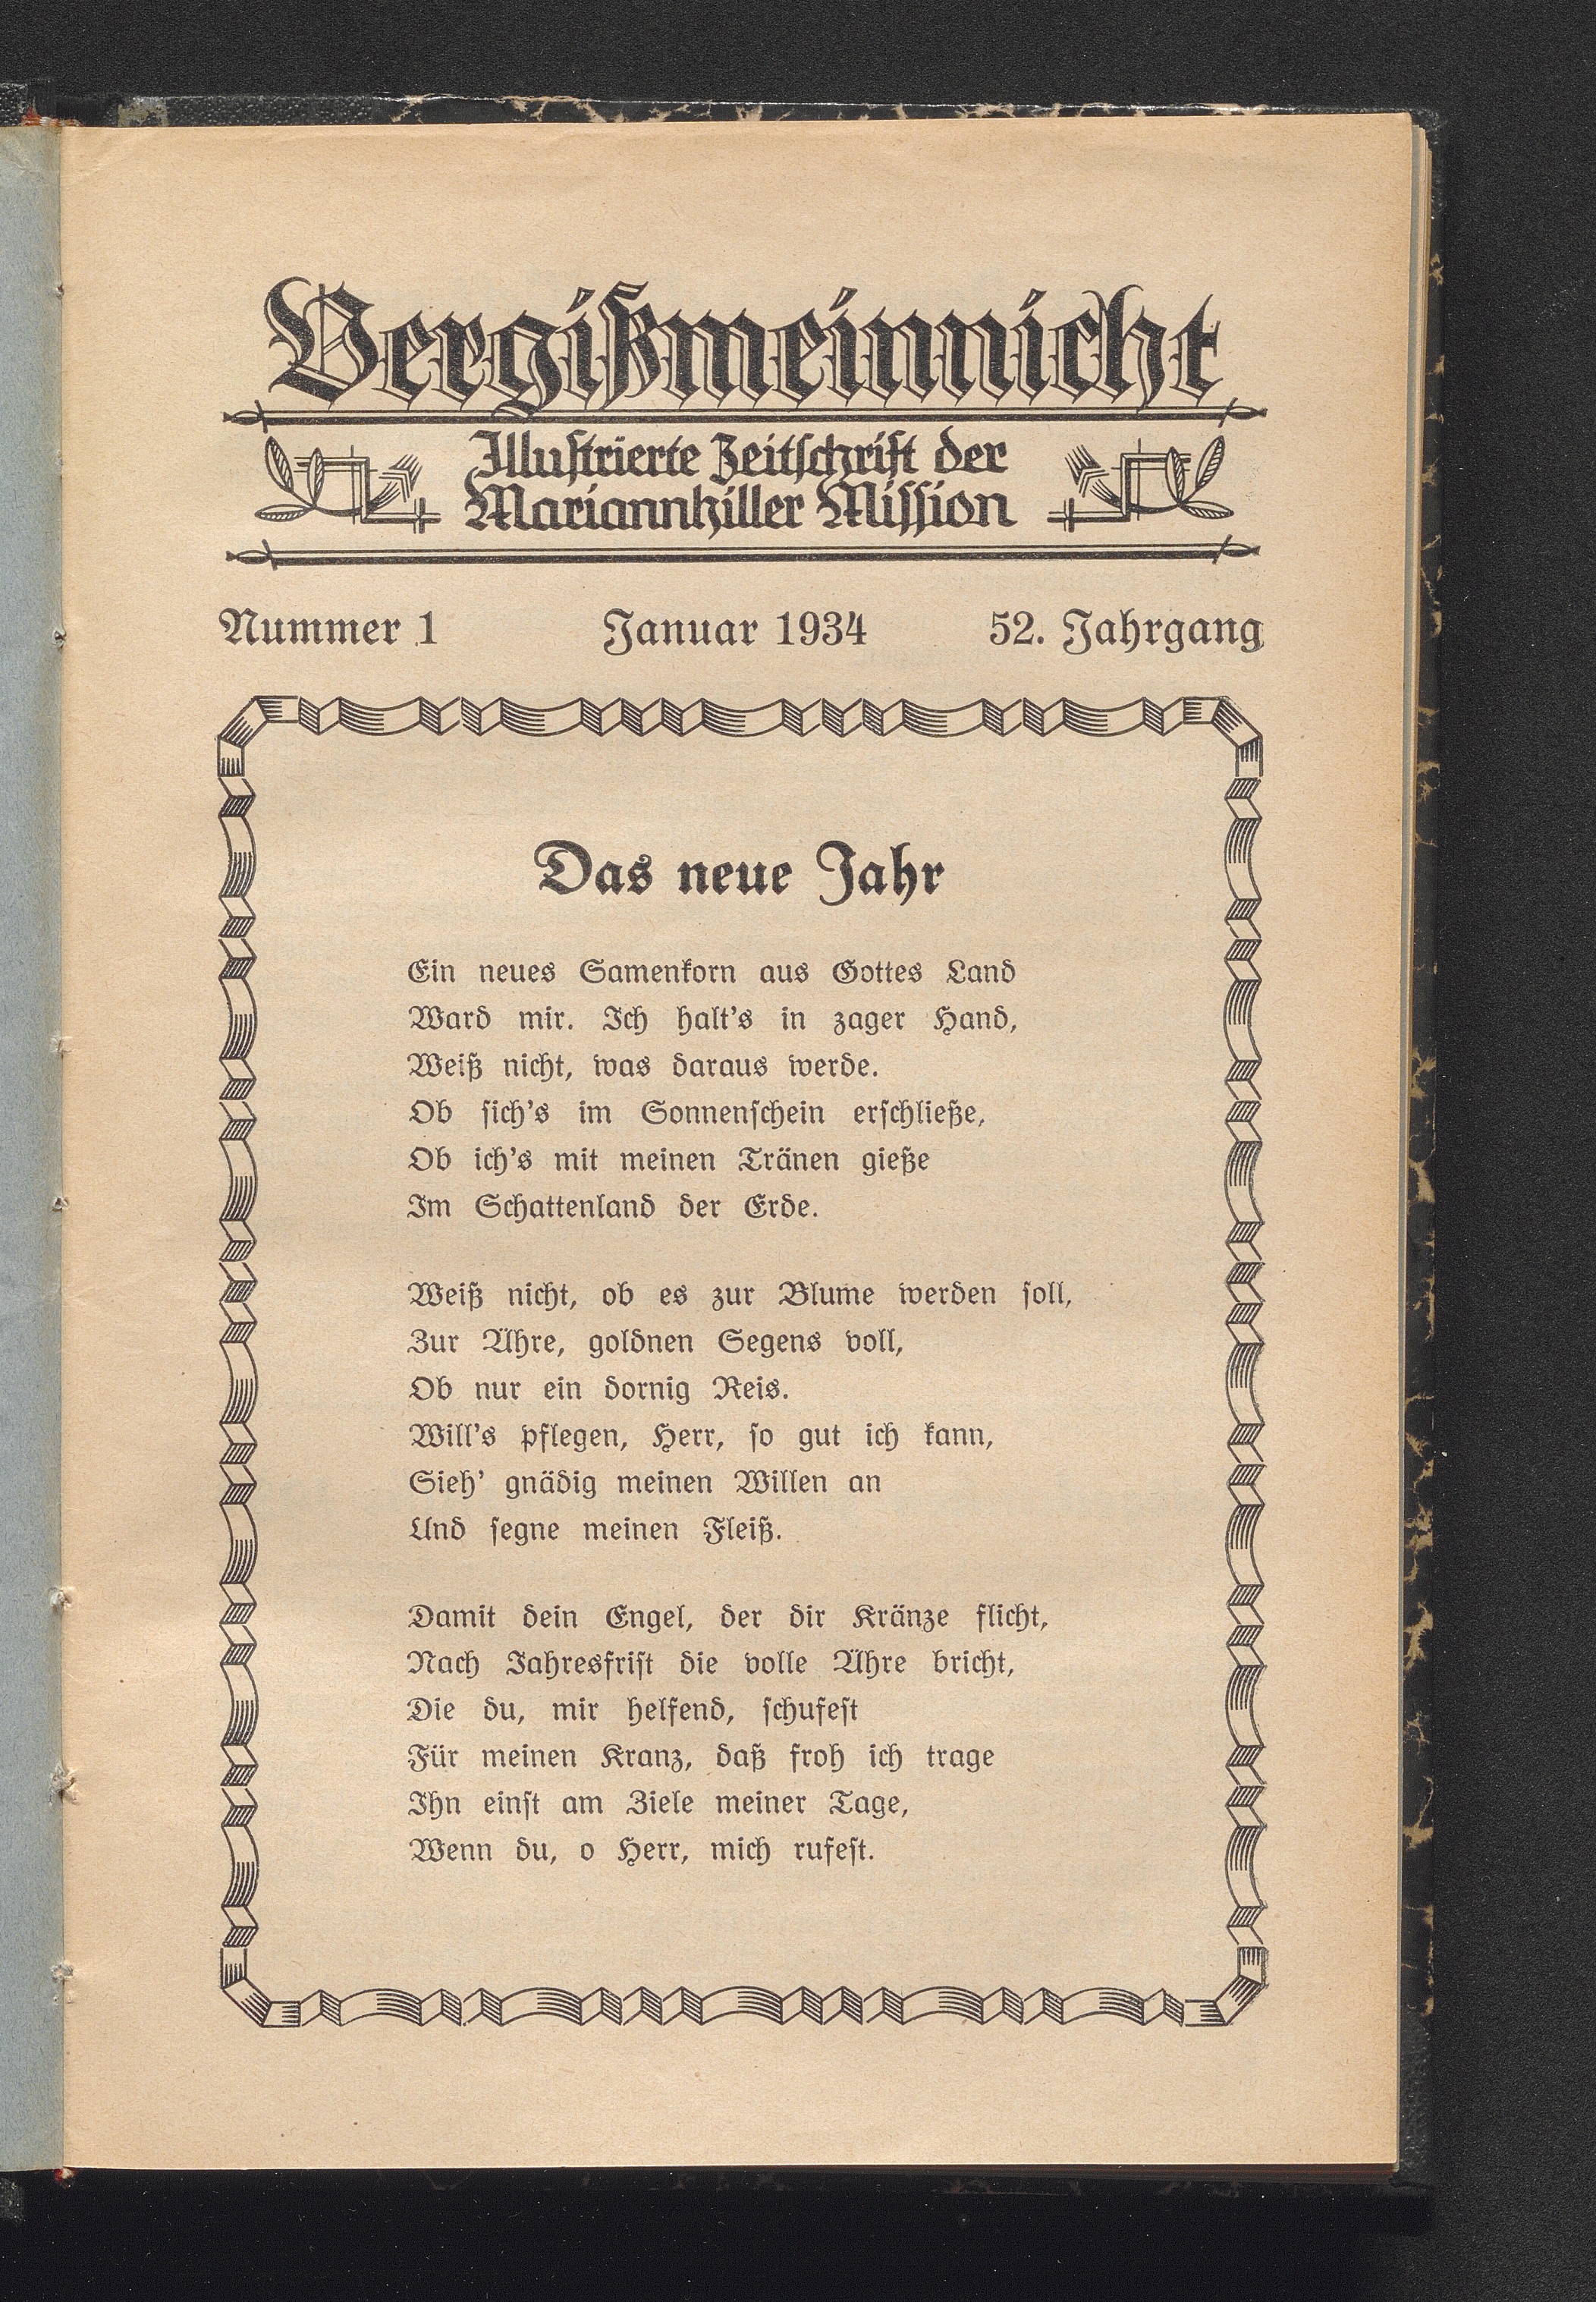 Vergißmeinnicht
Illustrierte Zeitschrift der
Mariannhiller Mission
Nummer 1 Januar 1934 52. Jahrgang
Das neue Jahr
Ein neues Samenkorn aus Gottes Land
Ward mir. Ich halt's in zager Hand,
Weiß nicht, was daraus werde.
Ob sich's im Sonnenschein erschließe,
Ob ich's mit meinen Tränen gieße
Im Schattenland der Erde.
Weiß nicht, ob es zur Blume werden soll,
Zur Ähre, goldnen Segens voll,
Ob nur ein dornig Reis.
Will's pflegen, Herr, so gut ich kann,
Sieh' gnädig meinen Willen an
Und segne meinen Fleiß.
Damit dein Engel, der dir Kränze flicht,
Nach Jahresfrist die volle Ähre bricht,
Die du, mir helfend, schufest
Für meinen Kranz, daß froh ich trage
Ihn einst am Ziele meiner Tage,
Wenn du, o Herr, mich rufest.